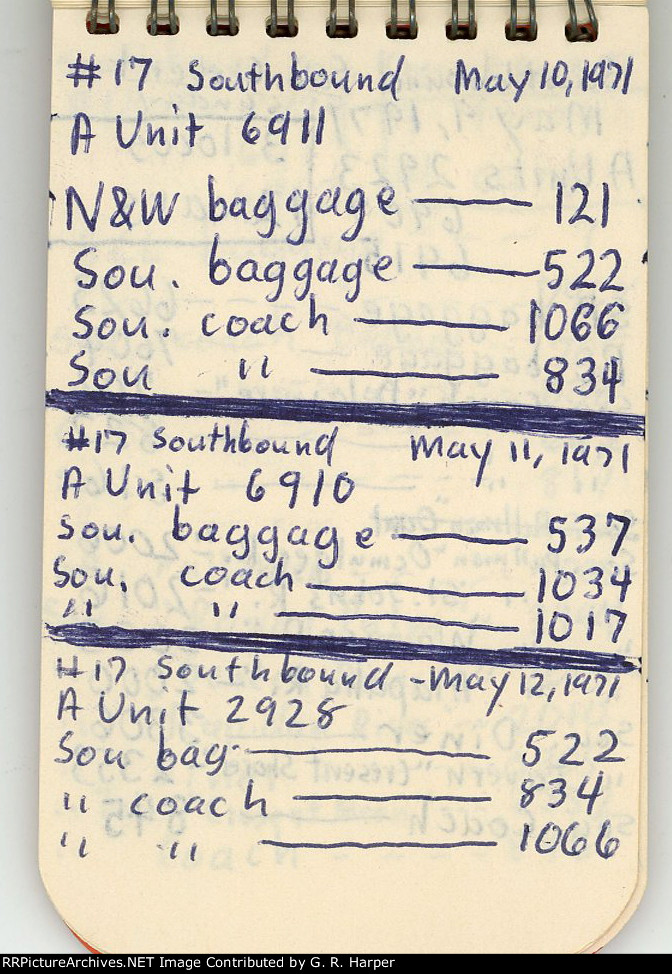 #17 Southbound May 10, 1971
A Unit 6911
N&W baggage — 121
Sou. baggage — 522
Sou. coach — 1066
Sou " — 834
#17 Southbound May 11, 1971
A Unit 6910
Sou. baggage — 537
Sou. coach — 1034
" " — 1017
#17 Southbound - May 12, 1971
A Unit 2928
Sou bag. — 522
" coach — 834
" " — 1066
RRPictureArchives.NET Image Contributed by G. R. Harper